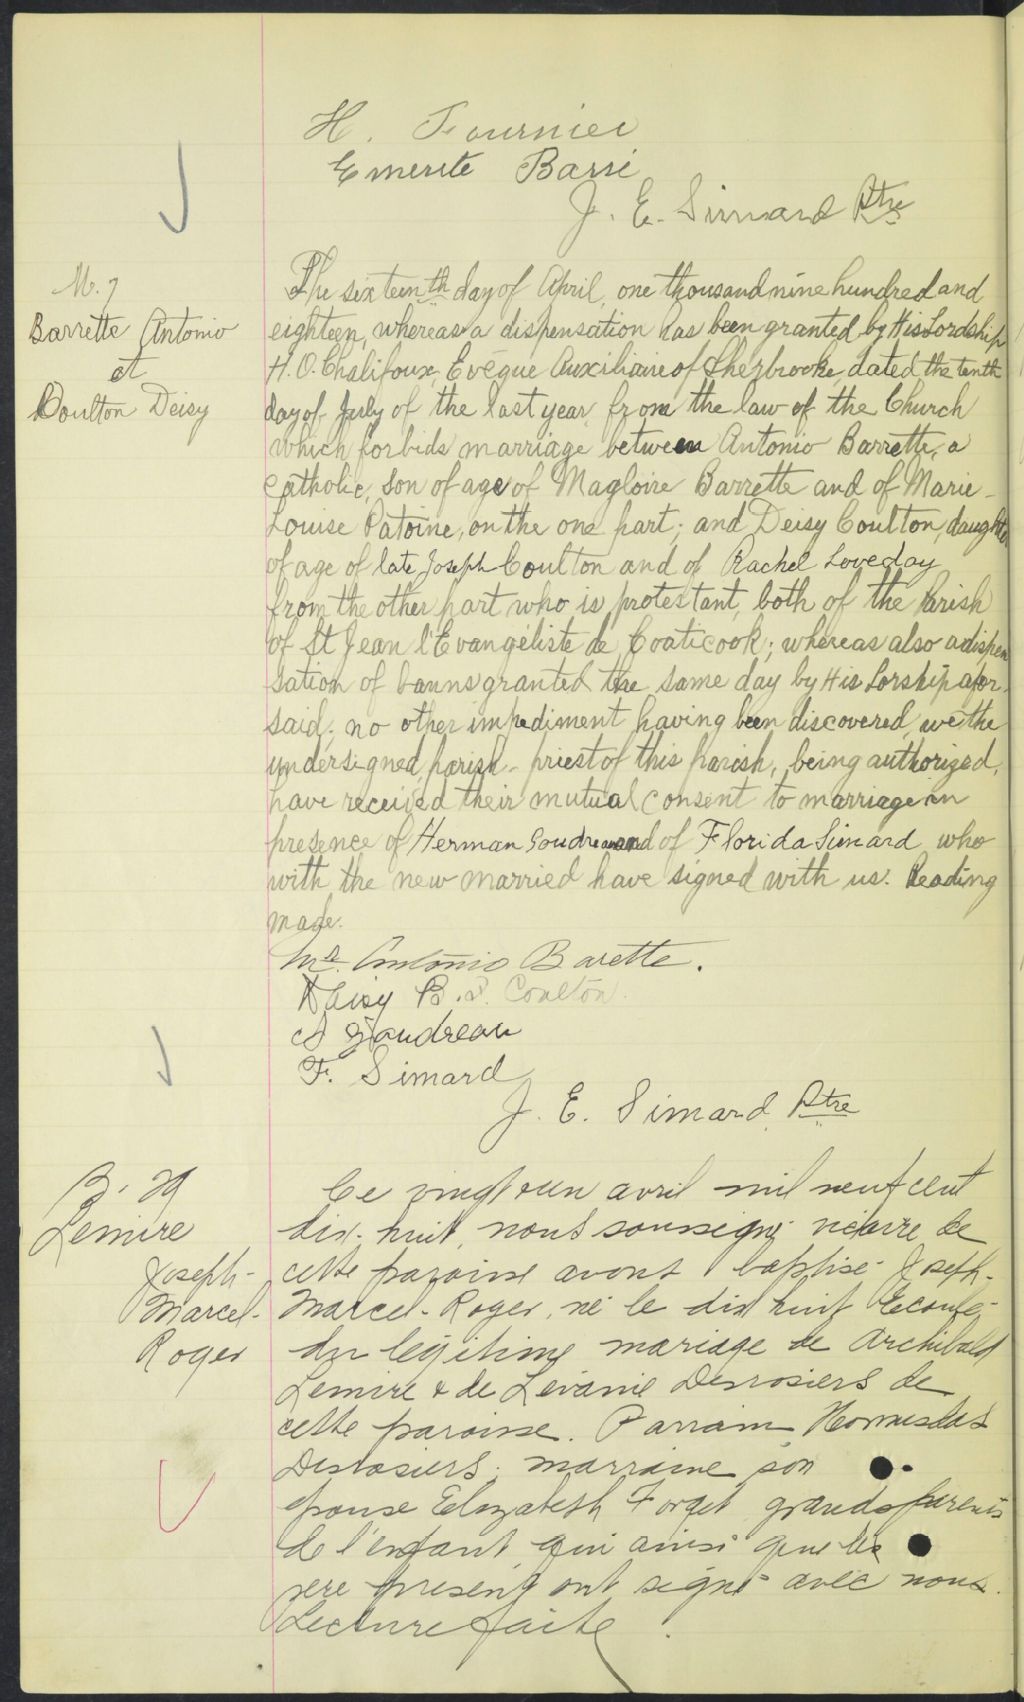 H. Fournier
Emerite Barré
J. E. Simard Ptre
M. 7
Barrette Antonio
et
Coulton Deisy
The sixteenth day of April, one thousand nine hundred and
eighteen, whereas a dispensation has been granted by His Lordship
H. O. Chalifoux, Evêque Auxiliaire of Sherbrooke, dated the tenth
day of July of the last year, from the law of the Church
which forbids marriage between Antonio Barrette, a
catholic, son of age of Magloire Barrette and of Marie-
Louise Patoine, on the one part; and Deisy Coulton, daughter
of age of late Joseph Coulton and of Rachel Loveday
from the other part who is protestant, both of the Parish
of St Jean l'Evangéliste de Coaticook; whereas also a dispen
sation of banns granted the same day by His Lorship afor-
said; no other impediment having been discovered, we the
undersigned, parish-priest of this parish, being authorized,
have received their mutual consent to marriage in
presence of Herman Goudreau and of Florida Simard who
with the new married have signed with us. Reading
made.
Mr. Antonio Barette.
Daisy B. Coulton.
Gaudreau
F. Simard
J. E. Simard, Ptre
B. 29
Lemire
Joseph-
Marcel-
Roger
Ce vingt-un avril mil neuf cent
dix-huit, nous soussigné vicaire de
cette paroisse avons baptisé Joseph-
Marcel-Roger, né le dix huit
du légitime mariage de Archibald
Lemire & de Lévanie Desrosiers de
cette paroisse. Parrain
Desrosiers; marraine son
épouse Elizabeth Forget grands parents
de l'enfant, qui ainsi que le
père présent ont signé avec nous.
Lecture faite.